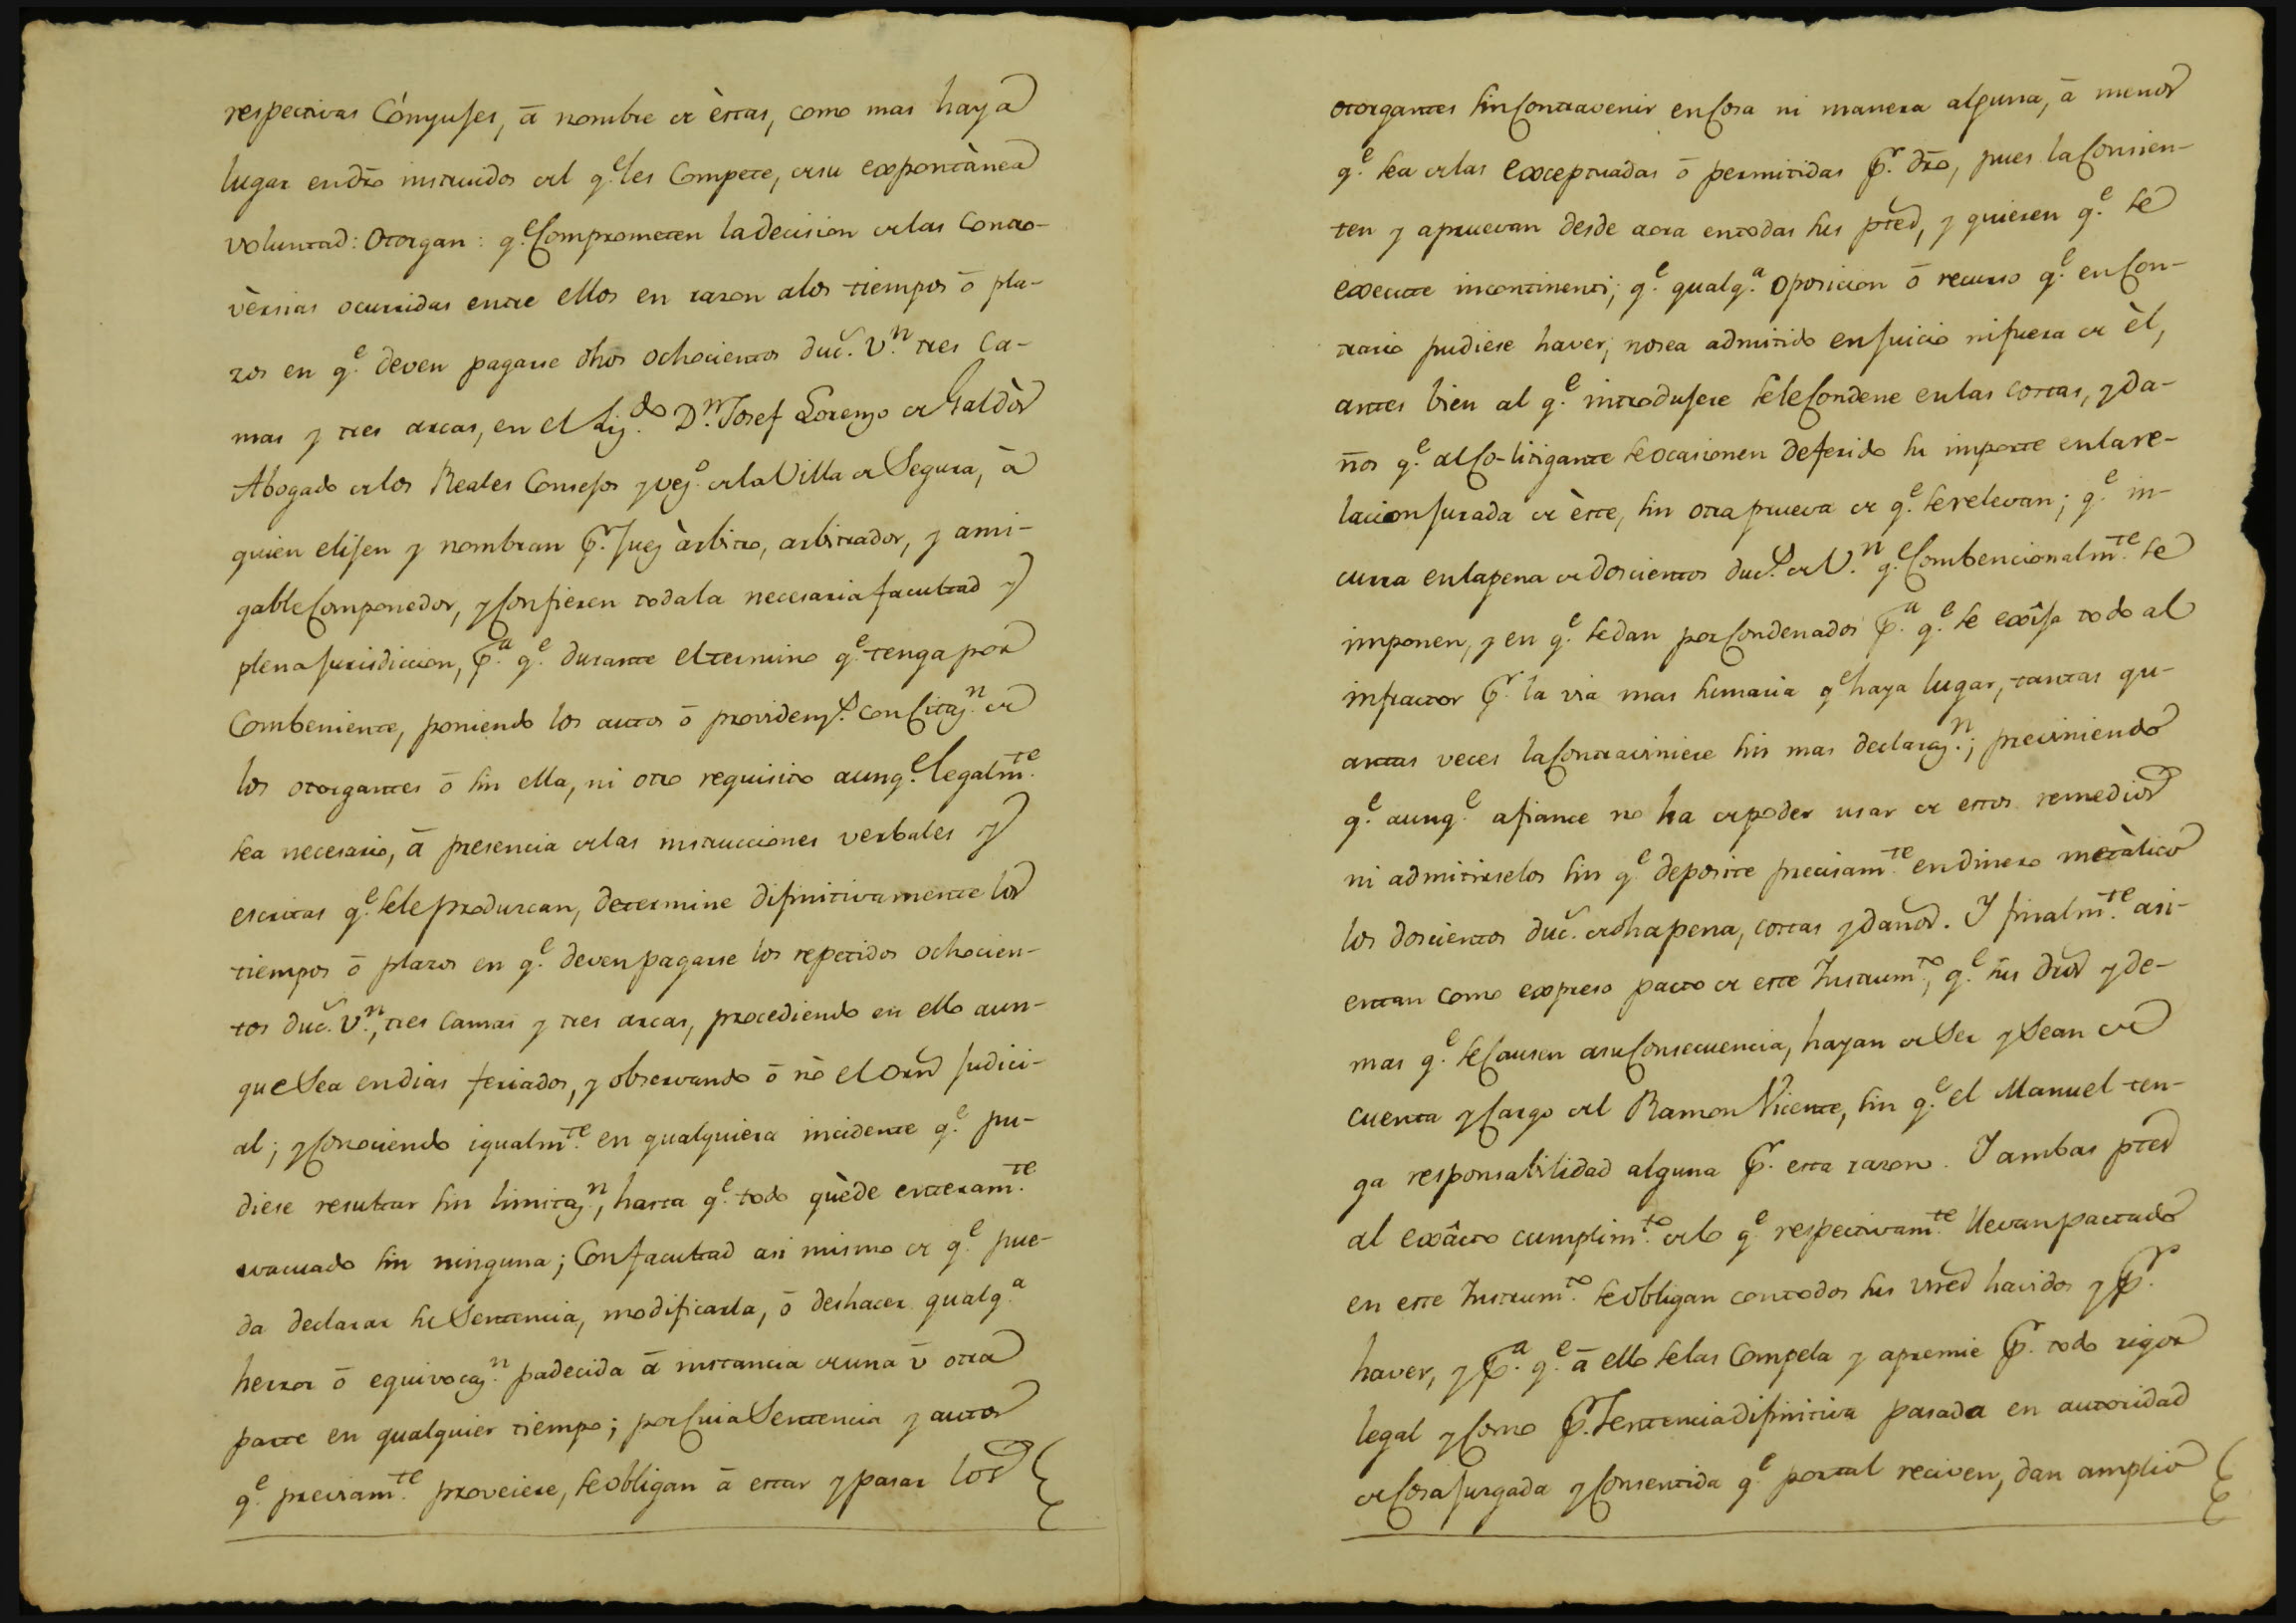 respectivas Cónyujes, ā nombre de èstas, como mas haya
lugar en dr̃o instruidos del q.^e les Compete, de su expontànea
voluntad: Otorgan: q.^e Comprometen la decision de las Contro-
vèrsias ocurridas entre ellos en razon alos tiempos ō pla-
zos en q.^e deven pagarse dhos ochocientos duc.^s V.^n tres Ca-
mas y tres arcas, en el Liz.^do D.^n Josef Lorenzo de Galdòs
Abogado de los Reales Consejos y vez.^o de la Villa de Segura, ā
quien elijen y nombran p.^r Juez àrbitro, arbitrador, y ami-
gable Componedor, y Confieren toda la necesaria facultad y
plena jurisdiccion, p.^a q.^e durante el termino q.^e tenga por
Combeniente, poniendo los autos ō providenz.^s con Citaz.^n de
los otorgantes ō sin ella, ni otro requisito aunq.^e legalm.^te
sea necesario, ā presencia de las instrucciones verbales y
escritas q.^e sele produzcan, determine difinitivamente los
tiempos ō plazos en q.^e deven pagarse los repetidos ochocien-
tos duc.^s V.^n, tres Camas y tres arcas, procediendo en ello aun-
que Sea en dias feriados, y observando ō nò el orñ judici-
al; y Conociendo igualm.^te en qualquiera incidente q.^e pu-
diese resultar sin limitaz.^n, hasta q.^e todo quède enteram.^te
evacuado sin ninguna; Con facultad asi mismo de q.^e pue-
da declarar su Sentencia, modificarla, ō deshacer qualq.^a
herror ō equivocaz.^n padecida ā instancia de una ū otra
parte en qualquier tiempo; por Cuia Sentencia y autos
q.^e precisam.^te proveiere, se obligan ā estar y pasar los
otorgantes sin Contravenir en Cosa ni manera alguna, ā menos
q.^e sea de las exceptuadas ō permitidas p.^r dr̃o, pues la Consien-
ten y apruevan desde aora en todas sus ptes, y quieren q.^e se
execute incontinenti; q.^e qualq.^a oposicion ō recurso q.^e en Con-
trario pudiese haver, no sea admitido en juicio ni fuera de èl,
antes bien al q.^e introdujere sele Condene en las costas, y da-
ños q.^e al Co-litigante se ocasionen deferido su importe en la re-
lacion jurada de èste, sin otra prueva de q.^e se relevan; q.^e in-
curra en la pena de doscientos duc.^s de V.^n q.^e Combencionalm.^te se
imponen, y en q.^e se dan por Condenados p.^a q.^e se exîja todo al
infractor p.^r la via mas sumaria q.^e haya lugar, tantas qu-
antas veces la Contraviniere sin mas declaraz.^n; previniendo
q.^e aunq.^e afiance no ha de poder usar de estos remedios
ni admitirselos sin q.^e deposite precisam.^te en dinero metàlico
los doscientos duc.^s de dha pena, costas y daños. Y finalm.^te asi-
entan como expreso pacto de este Instrum.^to, q.^e sus dr̃os y de-
mas q.^e se Causen a su Consecuencia, hayan de Ser y Sean de
cuenta y Cargo del Ramon Vicente, sin q.^e el Manuel ten-
ga responsabilidad alguna p.^r esta razon. Y ambas ptes
al exâcto cumplim.^to de lo q.^e respectivam.^te llevan pactado
en este Instrum.^to se obligan con todos sus vnes havidos y p.^r
haver, y p.^a q.^e ā ello se las Compela y apremie p.^r todo rigor
legal y Como p.^r Sentencia difinitiva pasada en autoridad
de Cosa juzgada y Consentida q.^e por tal reciven, dan amplio